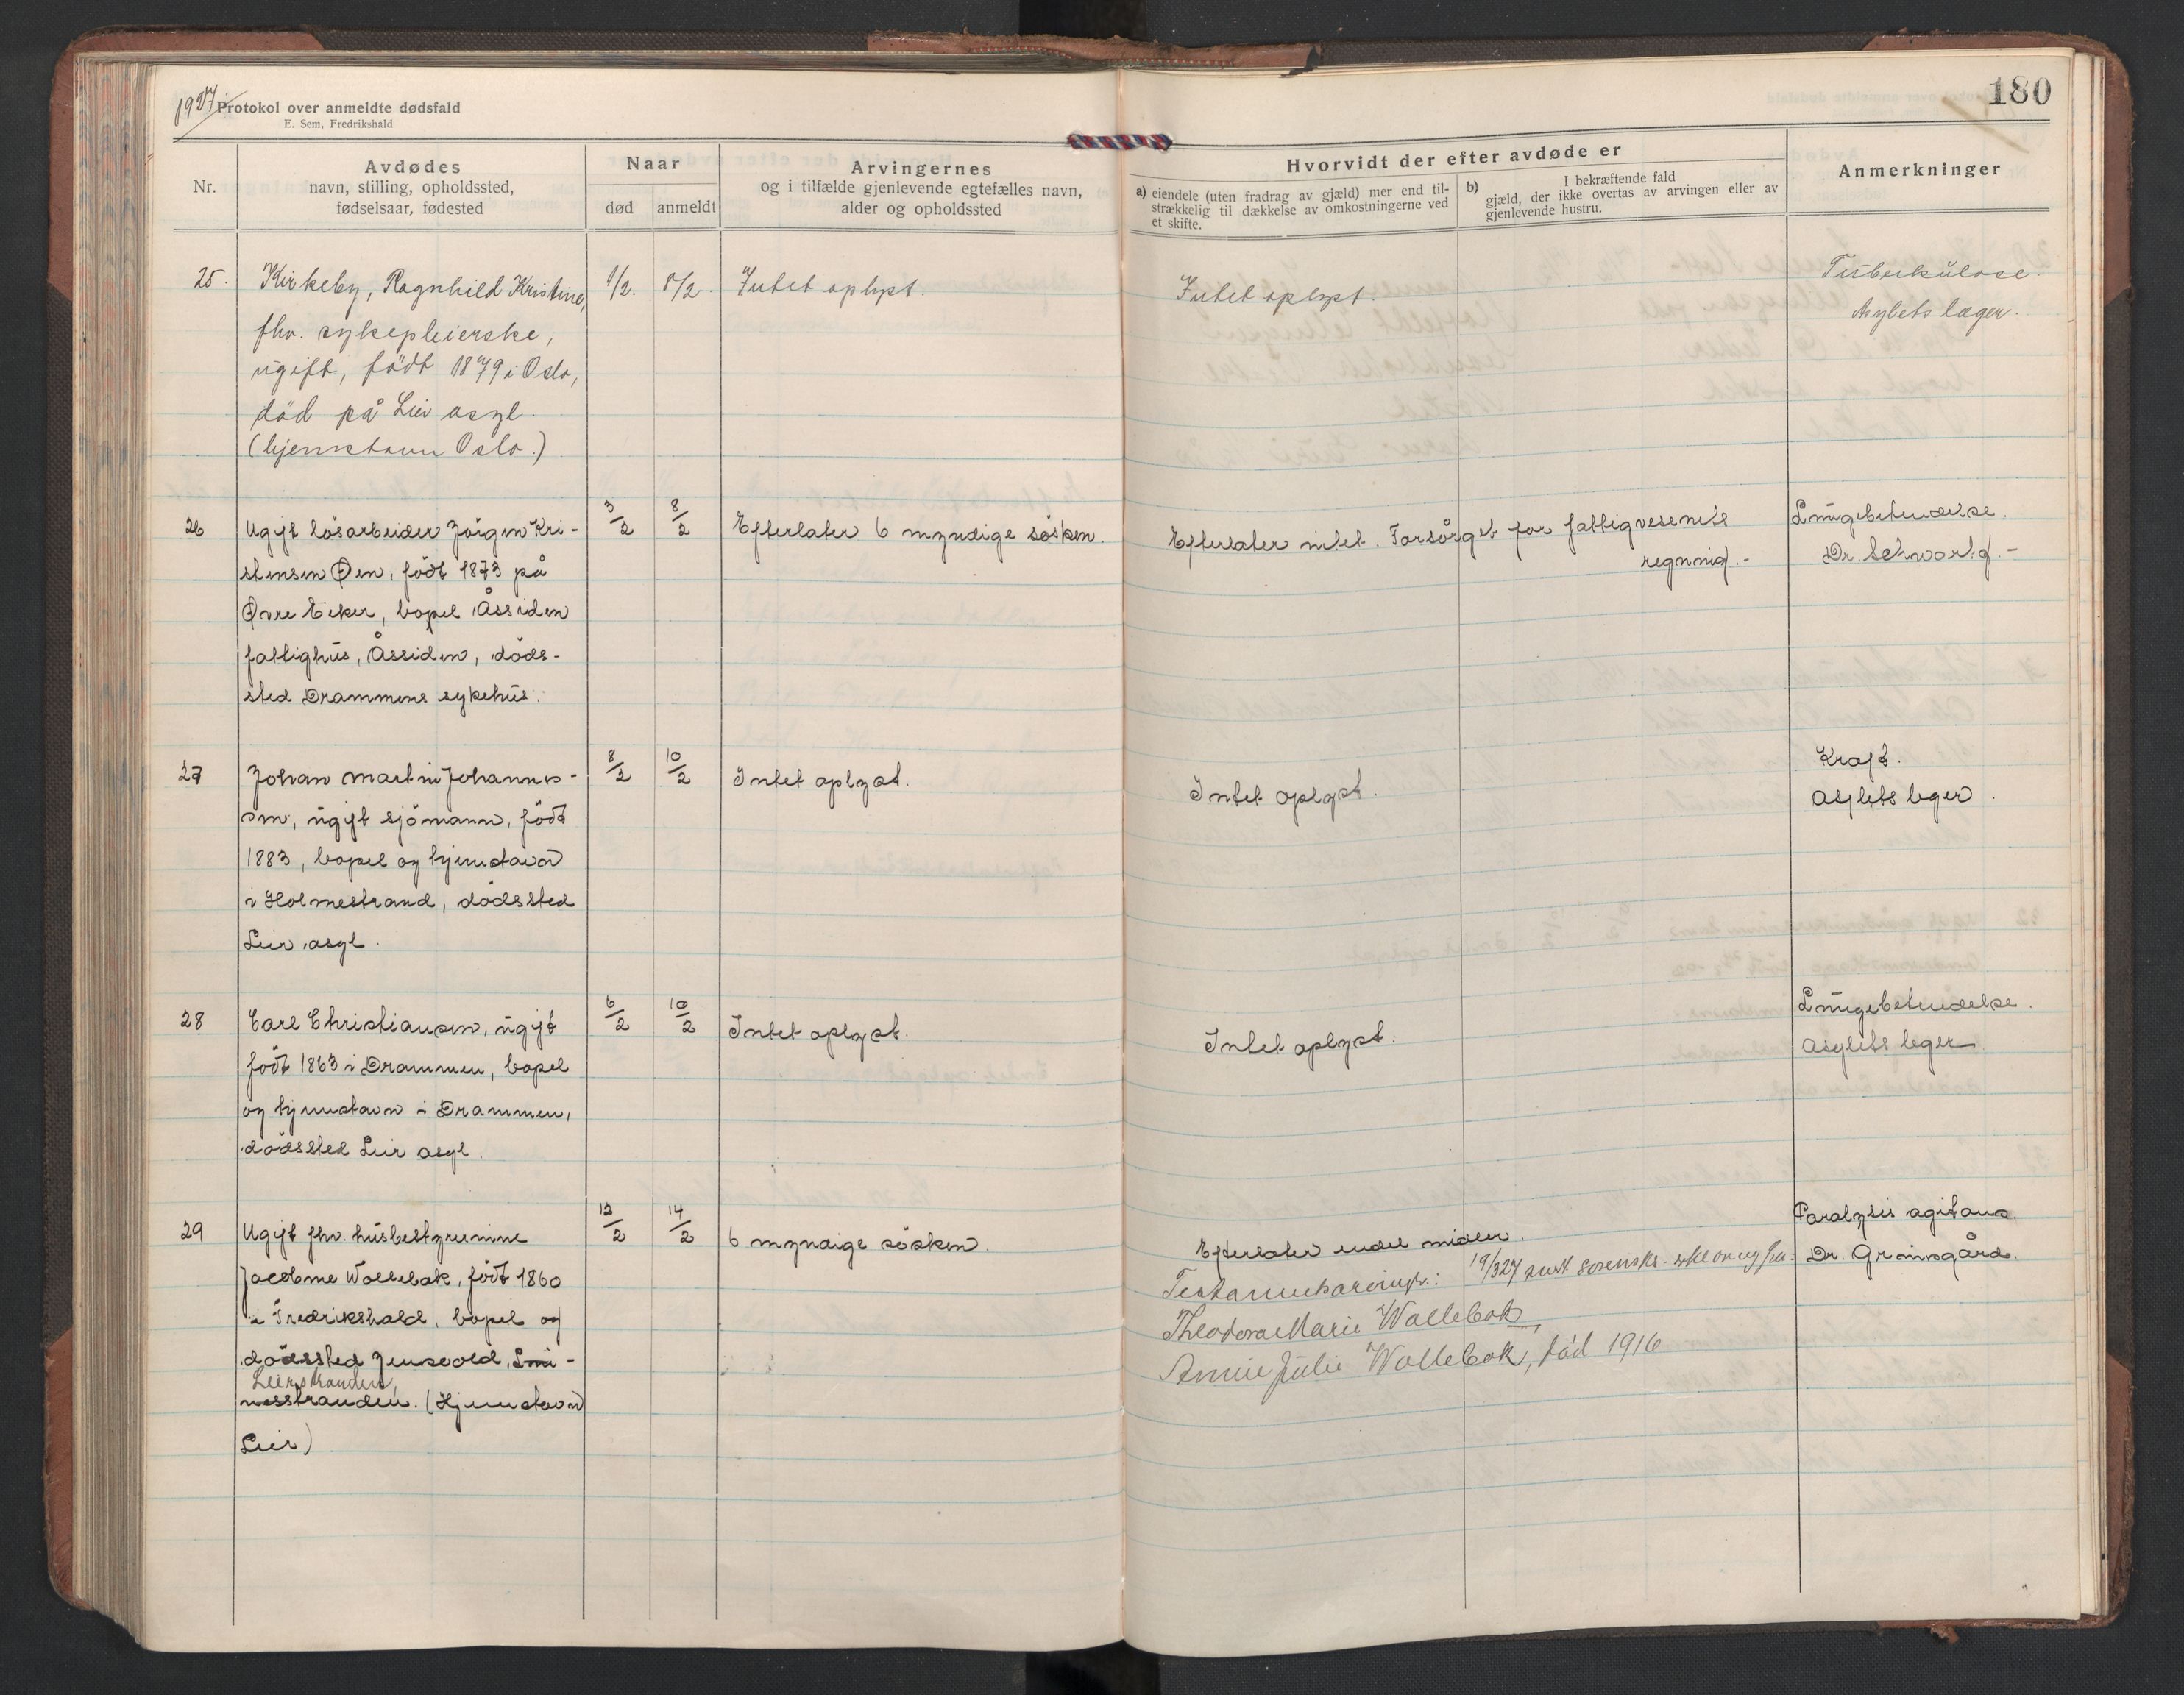 1927
Protokol over anmeldte dødsfald
E. Sem, Fredrikshald
180
Nr.
Avdødes
navn, stilling, opholdssted,
fødselsaar, fødested
Naar
død
anmeldt
Arvingernes
og i tilfælde gjenlevende egtefælles navn,
alder og opholdssted
Hvorvidt der efter avdøde er
a) eiendele (uten fradrag av gjæld) mer end til-
strækkelig til dækkelse av omkostningerne ved
et skifte.
b) I bekræftende fald
gjæld, der ikke overtas av arvingen eller av
gjenlevende hustru.
Anmerkninger
25.
Kirkeby, Ragnhild Kristine,
fhv. sykepleierske,
ugift, född 1879 i Oslo,
död på Lier asyl.
(hjemstavn Oslo.)
1/2.
8/2.
Intet oplyst.
Intet oplyst.
Tuberkulose.
Asylets læger.
26
Ugift lösarbeider Jörgen Kri-
stensen Øen, födt 1873 på
Øvre Eiker, bopel Åssiden
fattighus, Åssiden, döds-
sted Drammens sykehus.
3/2
8/2
Efterlater 6 myndige sösken.
Efterlater intet. Forsörget for fattigvesenets
regning.-
Lungebetendelse.
Dr. Schwartz.-
27
Johan Martin Johannes-
sen, ugift sjömann, födt
1883, bopel og hjemstavn
i Holmestrand, dödssted
Lier asyl.
8/2
10/2
Intet oplyst.
Intet oplyst.
Kraft.
Asylets leger.
28
Carl Christiansen, ugift
födt 1863 i Drammen, bopel
og hjemstavn i Drammen,
dödssted Lier asyl.
6/2
10/2
Intet oplyst.
Intet oplyst.
Lungebetendelse.
Asylets leger.
29
Ugift fhv. husbestyrerinne
Jacobine Wollebæk, födt 1860
i Fredrikshald, bopel og
dödssted Jensvold, Lin-
Lierstranden,
nesstranden. (Hjemstavn
Lier)
12/2
14/2
6 myndige sösken.
Efterlater endel midler.
Testamentsarvinger:
19/3 27 sorenskr.
Theodora Marie Wollebæk,
Annie Julie Wollebæk, död 1916
Paralysis agitans.
Dr. Grimsgård.